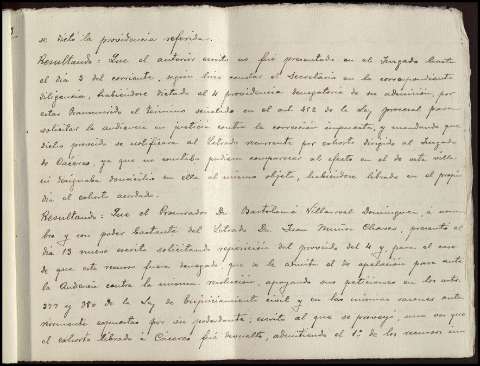 se dictó la providencia referida.
Resultando: Que el anterior escrito no fué presentado en el Juzgado hasta
el día 3 del corriente, según hizo constar el Secretario en la correspondiente
diligencia, habiéndose dictado el 4 providencia denegatoria de su admisión por
estar transcurrido el término señalado en el art. 452 de la Ley procesal para
solicitar la audiencia en justicia contra la corrección impuesta, y mandando que
dicho proveido se notificara al Letrado recurrente por exhorto dirigido al Juzgado
de Cáceres, ya que no constaba pudiera comparecer al efecto en el de esta villa
ni designaba domicilio en ella al mismo objeto, habiéndose librado en el propio
día el exhorto acordado.
Resultando: Que el Procurador Dn. Bartolomé Villarroel Domínguez, á nom-
bre y con poder bastante del Letrado Dn. Juan Muñoz Chaves, presentó el
día 13 nuevo escrito solicitando reposición del proveido del 4 y, para el caso
de que este recurso fuera denegado que se le admita el de apelación para ante
la Audiencia contra la misma resolución, apoyando sus peticiones en los arts.
377 y 380 de la Ley de Enjuiciamiento civil y en las mismas razones ante-
riormente expuestas por su poderdante; escrito al que se proveyó, una vez que
el exhorto librado á Cáceres fué devuelto, admitiendo el 1º de los recursos